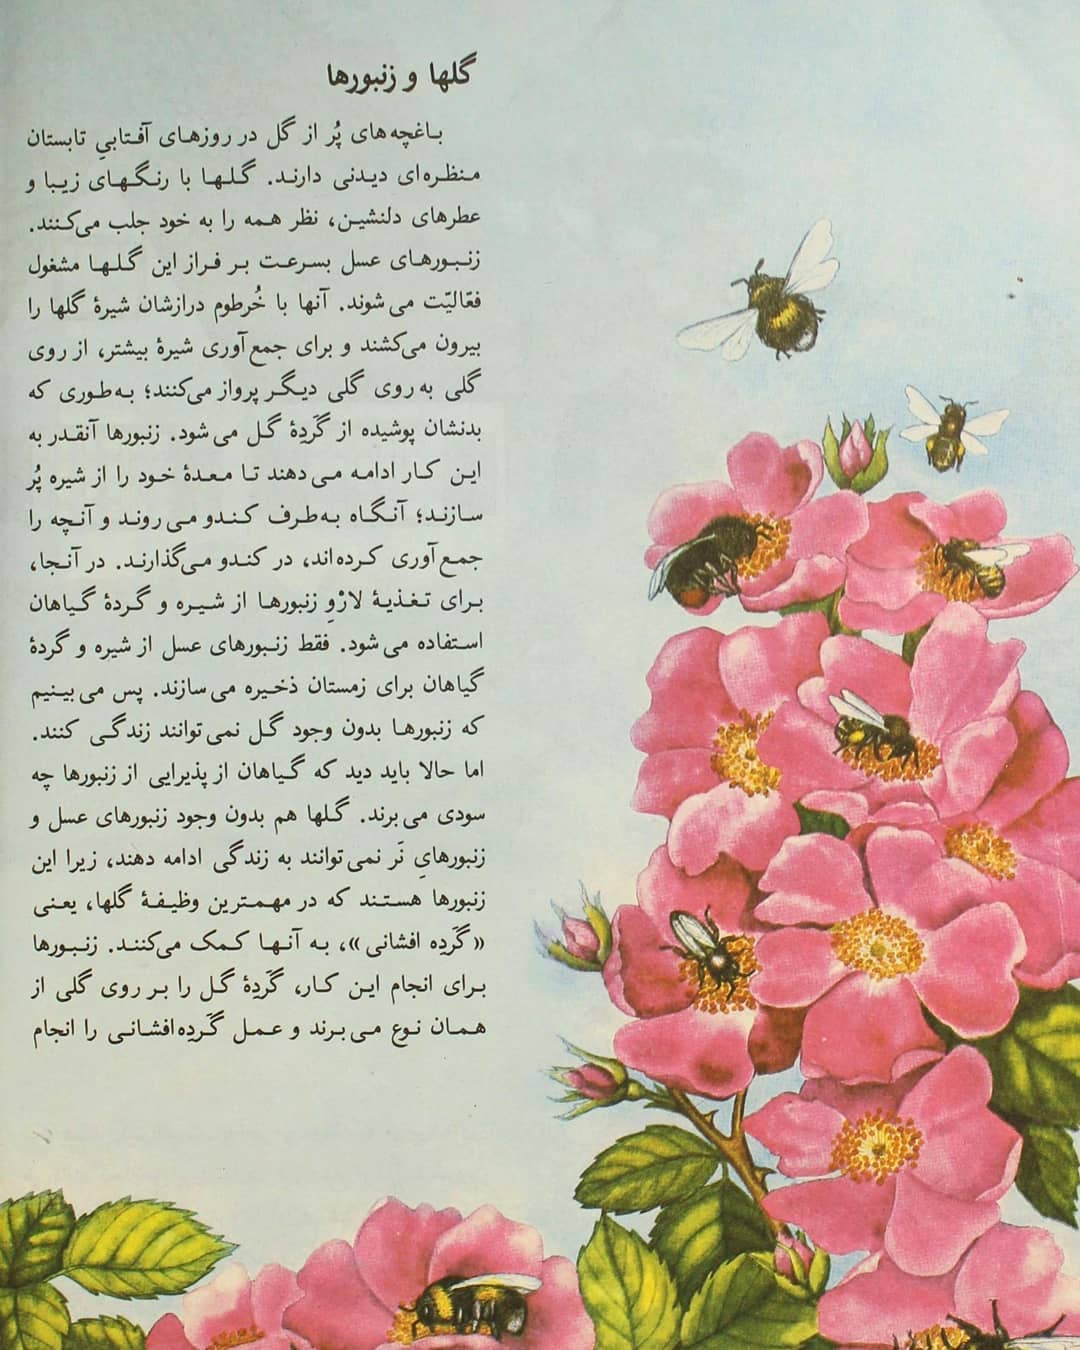 گلها و زنبورها
باغچه‌های پُر از گل در روزهای آفتابیِ تابستان
منظره‌ای دیدنی دارند. گلها با رنگهای زیبا و
عطرهای دلنشین، نظر همه را به خود جلب می‌کنند.
زنبورهای عسل بسرعت بر فراز این گلها مشغول
فعّالیّت می‌شوند. آنها با خُرطوم درازشان شیرهٔ گلها را
بیرون می‌کشند و برای جمع‌آوری شیرهٔ بیشتر، از روی
گلی به روی گلی دیگر پرواز می‌کنند؛ به‌طوری که
بدنشان پوشیده از گَردِهٔ گل می‌شود. زنبورها آنقدر به
این کار ادامه می‌دهند تا معدهٔ خود را از شیره پُر
سازند؛ آنگاه به‌طرف کندو می‌روند و آنچه را
جمع‌آوری کرده‌اند، در کندو می‌گذارند. در آنجا،
برای تغذیهٔ لارْوِ زنبورها از شیره و گردهٔ گیاهان
استفاده می‌شود. فقط زنبورهای عسل از شیره و گردهٔ
گیاهان برای زمستان ذخیره می‌سازند. پس می‌بینیم
که زنبورها بدون وجود گل نمی‌توانند زندگی کنند.
اما حالا باید دید که گیاهان از پذیرایی از زنبورها چه
سودی می‌برند. گلها هم بدون وجود زنبورهای عسل و
زنبورهایِ نَر نمی‌توانند به زندگی ادامه دهند، زیرا این
زنبورها هستند که در مهمترین وظیفهٔ گلها، یعنی
«گَردِه افشانی»، به آنها کمک می‌کنند. زنبورها
برای انجام این کار، گَردِهٔ گل را بر روی گلی از
همان نوع می‌برند و عمل گَردِه‌افشانی را انجام